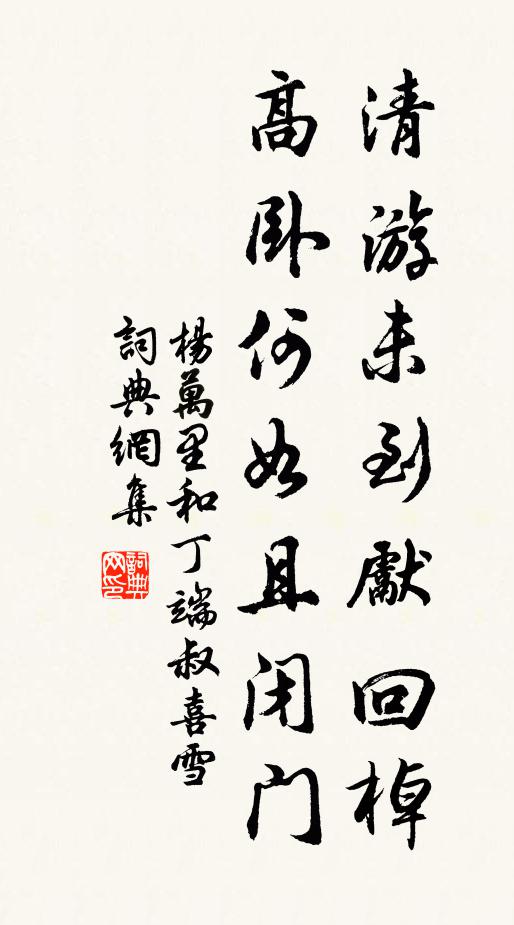 清游未到獻回棹
高卧何如且闭门
楊萬里和丁端叔喜雪
詞典網集
詞典网印